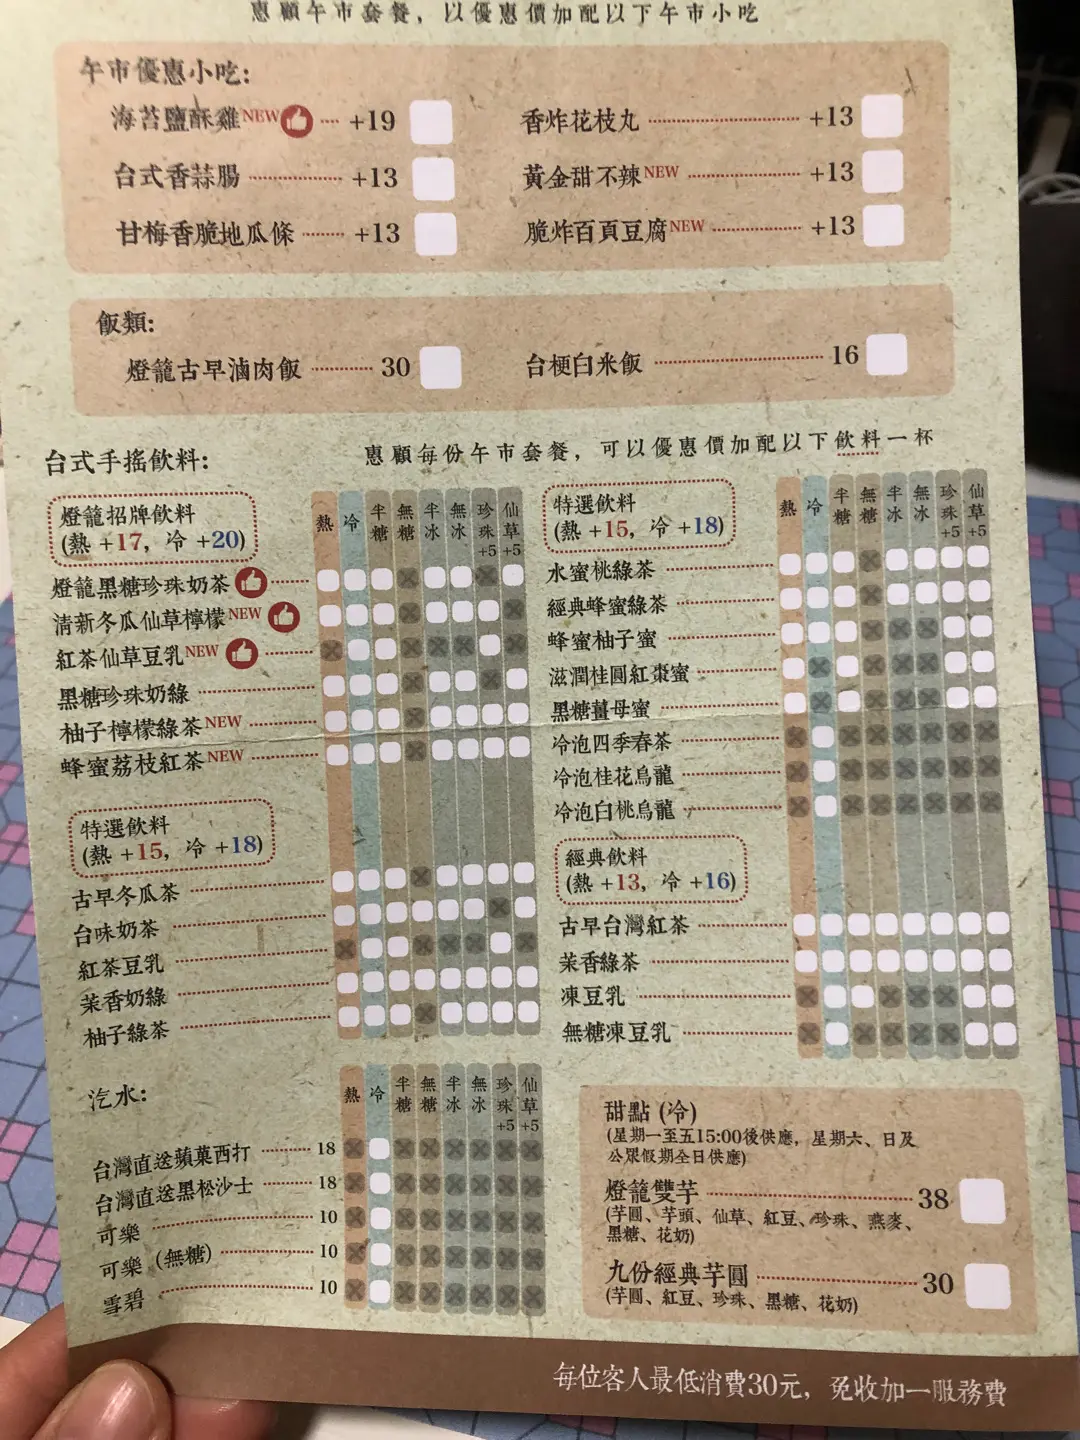 惠顧午市套餐，以優惠價加配以下午市小吃
午市優惠小吃:
海苔鹽酥雞NEW +19
香炸花枝丸 +13
台式香蒜腸 +13
黃金甜不辣NEW +13
甘梅香脆地瓜條 +13
脆炸百頁豆腐NEW +13
飯類:
燈籠古早滷肉飯 30
台梗白米飯 16
台式手搖飲料:
惠顧每份午市套餐，可以優惠價加配以下飲料一杯
燈籠招牌飲料
(熱 +17, 冷 +20)
熱 冷 半糖 無糖 半冰 無冰 珍珠+5 仙草+5
燈籠黑糖珍珠奶茶
清新冬瓜仙草檸檬NEW
紅茶仙草豆乳NEW
黑糖珍珠奶綠
柚子檸檬綠茶NEW
蜂蜜荔枝紅茶NEW
特選飲料
(熱 +15, 冷 +18)
古早冬瓜茶
台味奶茶
紅茶豆乳
茉香奶綠
柚子綠茶
特選飲料
(熱 +15, 冷 +18)
熱 冷 半糖 無糖 半冰 無冰 珍珠+5 仙草+5
水蜜桃綠茶
經典蜂蜜綠茶
蜂蜜柚子蜜
滋潤桂圓紅棗蜜
黑糖薑母蜜
冷泡四季春茶
冷泡桂花烏龍
冷泡白桃烏龍
經典飲料
(熱 +13, 冷 +16)
古早台灣紅茶
茉香綠茶
凍豆乳
無糖凍豆乳
汽水:
熱 冷 半糖 無糖 半冰 無冰 珍珠+5 仙草+5
台灣直送蘋菓西打 18
台灣直送黑松沙士 18
可樂 10
可樂 (無糖) 10
雪碧 10
甜點 (冷)
(星期一至五15:00後供應，星期六、日及
公眾假期全日供應)
燈籠雙芋 38
(芋圓、芋頭、仙草、紅豆、珍珠、燕麥、
黑糖、花奶)
九份經典芋圓 30
(芋圓、紅豆、珍珠、黑糖、花奶)
每位客人最低消費30元，免收加一服務費